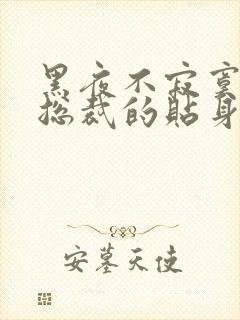 黑夜不寂寞
总裁的贴身
安墓天使